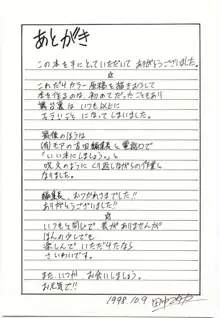 あとがき
この本を手にとっていただいて ありがとうございました。
☆
これだけカラー原稿を描きおろして
本を作るのは、初めてだったこともあり
舞台裏は いつも以上に
すごいことになってしまいました。
最後のほうは
編集長と電話口で
「いい本にしましょう。」と
呪文のように くり返しながらの作業と
なりました。
編集長、おつかれさまでした!!
ありがとうございました!!
☆
いつも同じで 芸がありませんが
ほんの少しでも
楽しんでいただけたなら
さいわいです。
また いつか お会いしましょう。
お元気で!!
1998.10.9